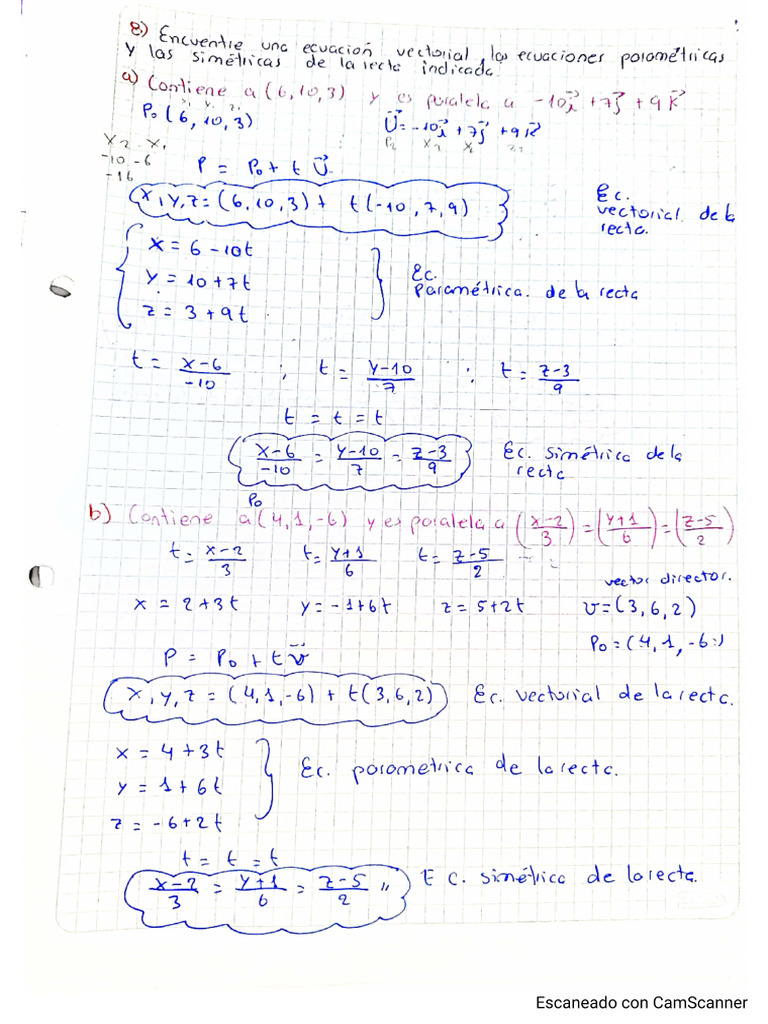 8) Encuentre una ecuación vectorial, las ecuaciones paramétricas
y las simétricas de la recta indicada.
a) Contiene a (6, 10, 3) y es paralela a -10i⃗ + 7j⃗ + 9k⃗
x₁ y₁ z₁
P₀ (6, 10, 3) U⃗ = -10i⃗ + 7j⃗ + 9k⃗
x₂ - x₁
-10 - 6
-16
P = P₀ + t U⃗
x, y, z = (6, 10, 3) + t(-10, 7, 9)
Ec.
vectorial de la
recta.
x = 6 - 10t
y = 10 + 7t
z = 3 + 9t
Ec.
Paramétrica. de la recta
t = (x-6)/-10 ; t = (y-10)/7 ; t = (z-3)/9
t = t = t
(x-6)/-10 = (y-10)/7 = (z-3)/9 Ec. simétrica de la
recta
P₀
b) Contiene a (4, 1, -6) y es paralela a ((x-2)/3) = ((y+1)/6) = ((z-5)/2)
t = (x-2)/3 t = (y+1)/6 t = (z-5)/2
vector director.
x = 2 + 3t y = -1 + 6t z = 5 + 2t v = (3, 6, 2)
P₀ = (4, 1, -6)
P = P₀ + t v⃗
x, y, z = (4, 1, -6) + t(3, 6, 2) Ec. vectorial de la recta.
x = 4 + 3t
y = 1 + 6t
z = -6 + 2t
Ec. parametrica de la recta.
t = t = t
(x-2)/3 = (y+1)/6 = (z-5)/2 Ec. simétrica de la recta.
Escaneado con CamScanner